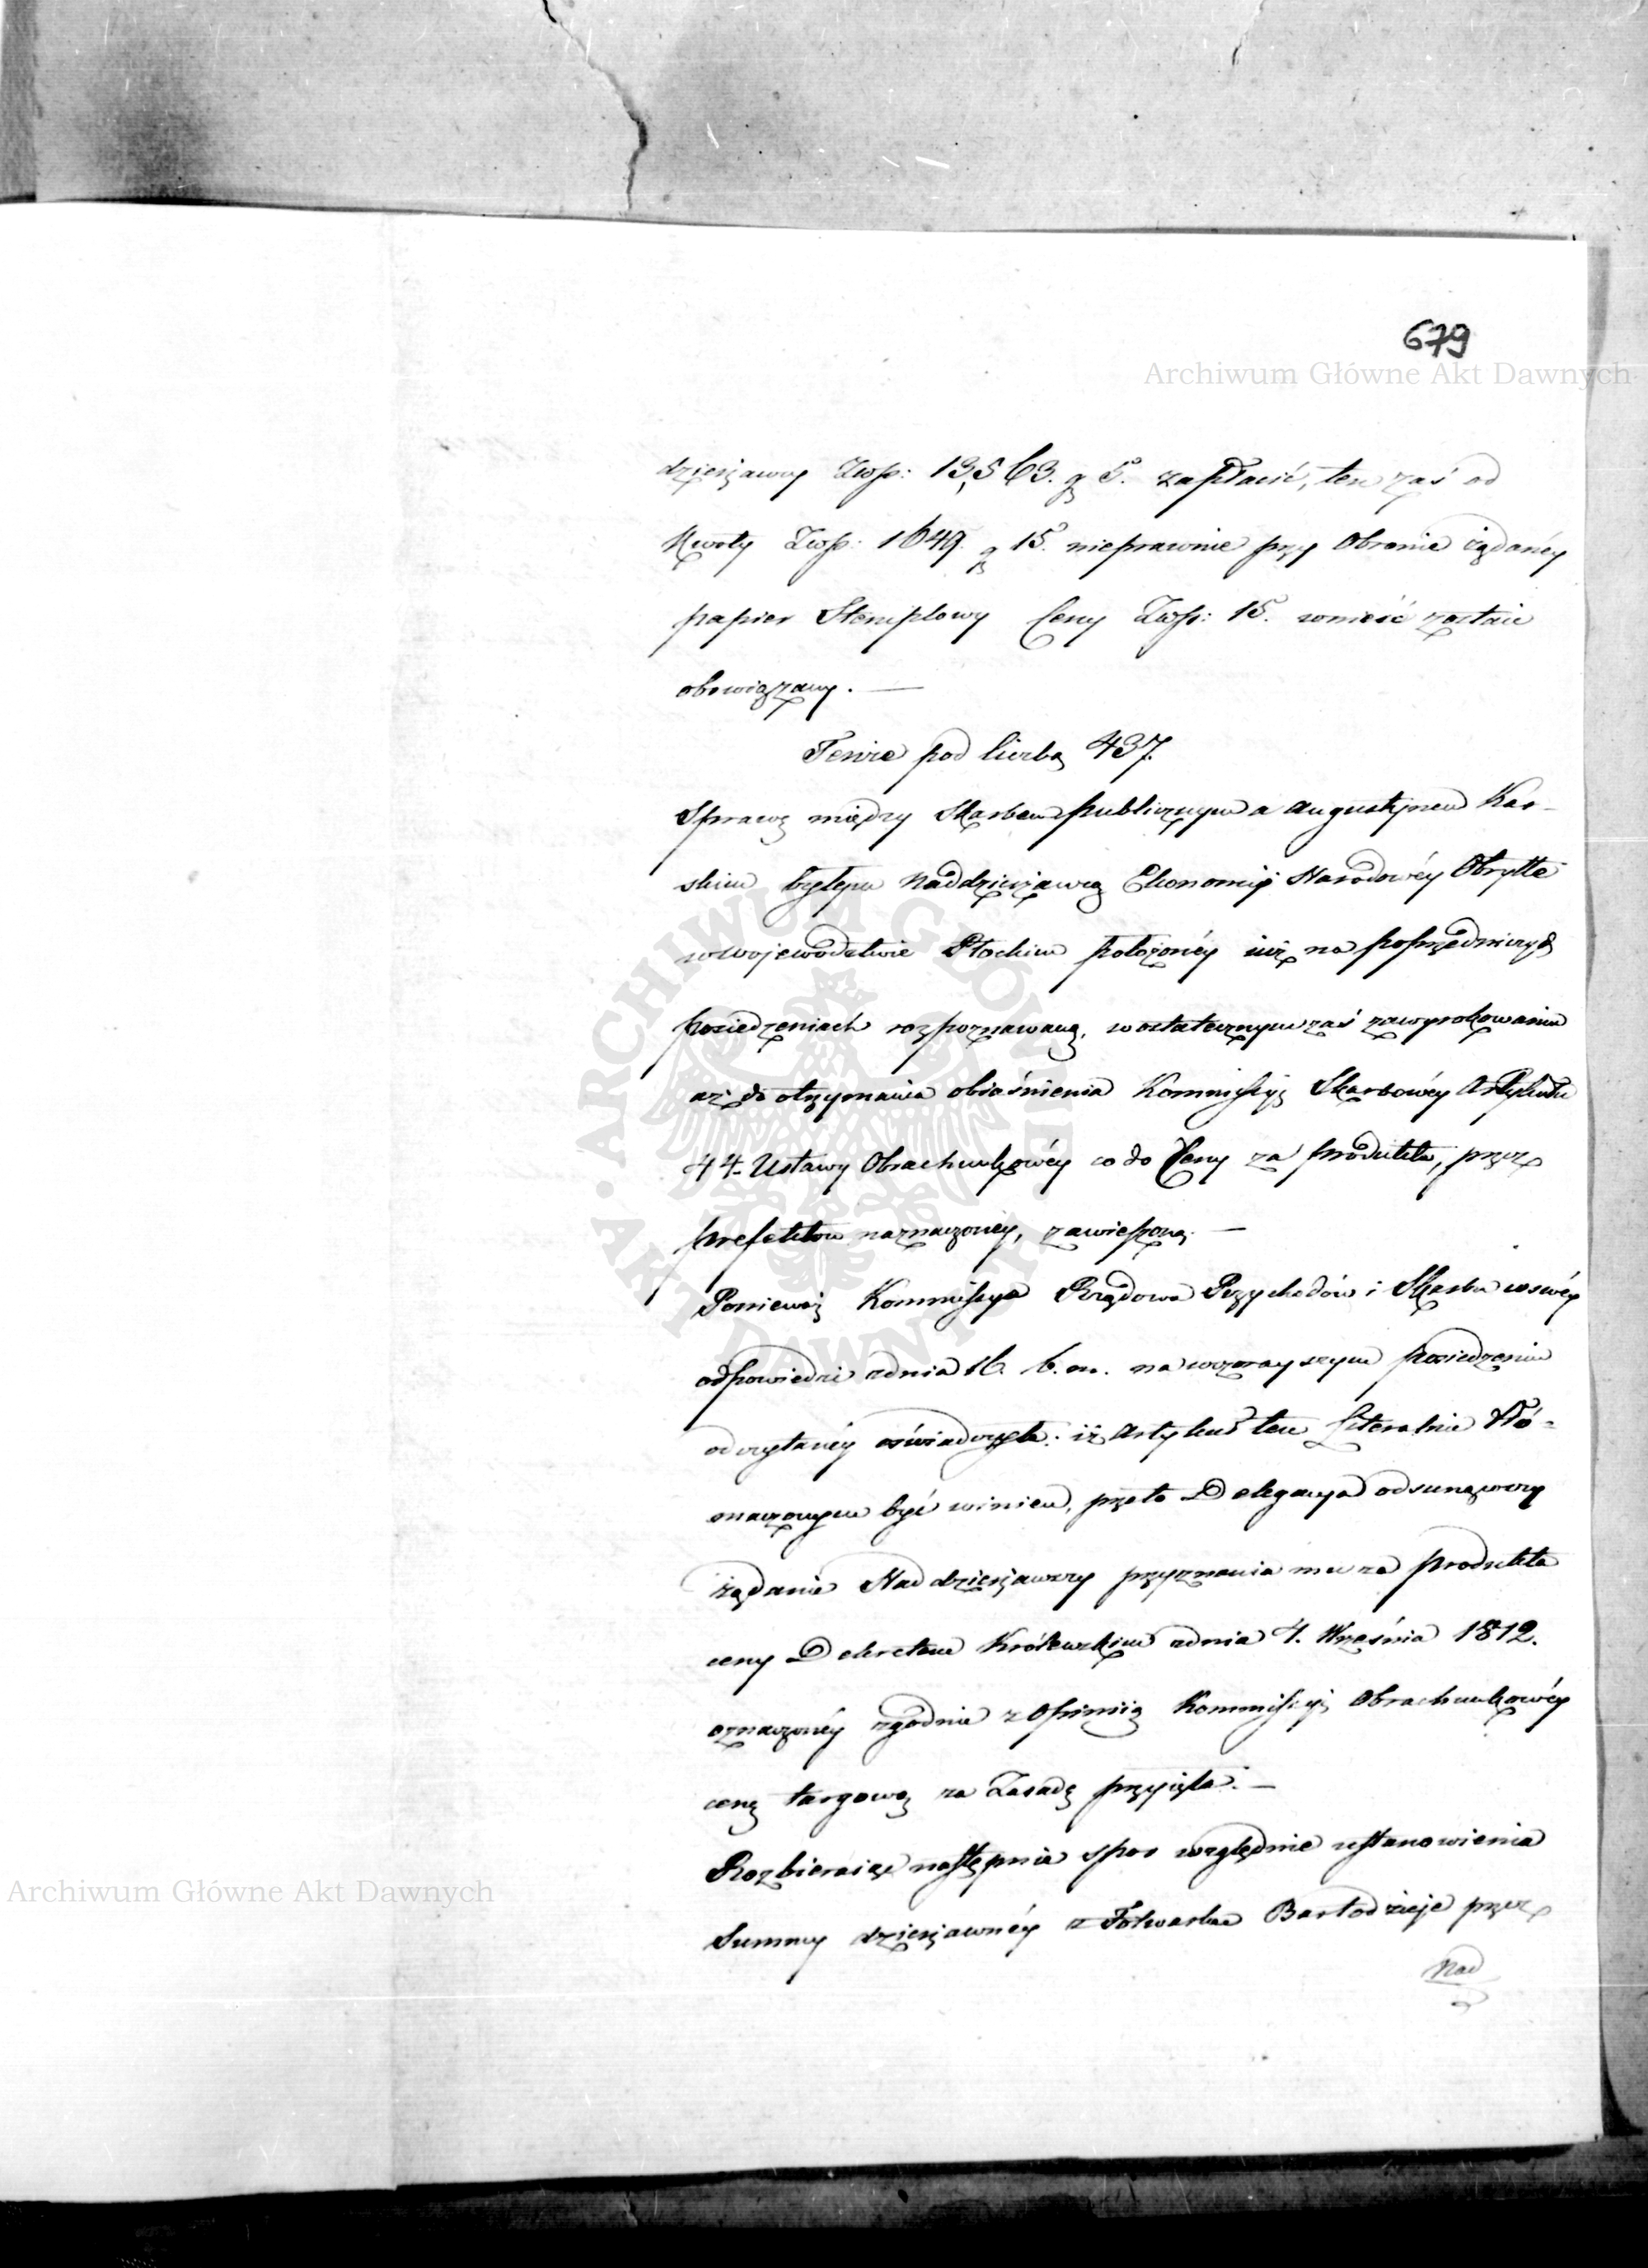 679
Archiwum Główne Akt Dawnych
dzierżawny Złłp: 13,563. gr 5. zapłacić, ten zaś od
Kwoty Złłp: 1649. gr 15. nieprawnie przy Obronie żądanéy
papier Stemplowy Ceny Złłp: 15. wnieść zostaie
obowiązany. —
Tenże pod liczbą 437.
Sprawę między Skarbem publicznym a Augustynem Kar-
skim byłym Naddzierżawcą Ekonomij Narodowéy Obrytte
w wojewodztwie Płockim położonéy już na poprzedniczych
posiedzeniach rozpoznawaną, w ostatecznym zaś zawyrokowaniu
aż do otrzymania obiaśnienia Kommissyi Skarbowéy Artykułu
44. Ustawy Obrachunkowéy co do Ceny za produkta, przez
prefektów naznaczonéy, zawieszoną. —
Ponieważ Kommissya Rządowa Przychodów i Skarbu w swéy
odpowiedzi z dnia 16. b. m. na wczorayszym posiedzeniu
odczytanéy oświadczyła: iż Artykuł ten Literalnie tłó-
maczonym być winien, przeto Delegacya odsunąwszy
żądanie Naddzierżawcy przyznania mu za produkta
ceny Dekretem Królewskim z dnia 4. Września 1812.
oznaczonéy zgodnie z Opinią Kommissyi Obrachunkowéy
cenę targową za Zasadę przyięła. —
Rozbieraiąc następnie spor względnie ustanowienia
Summy dzierżawnéy z Folwarku Bartodzieje przez
Nad
ARCHIWUM GŁÓWNE
AKT DAWNYCH
Archiwum Główne Akt Dawnych
Archiwum Główne Akt Dawnych